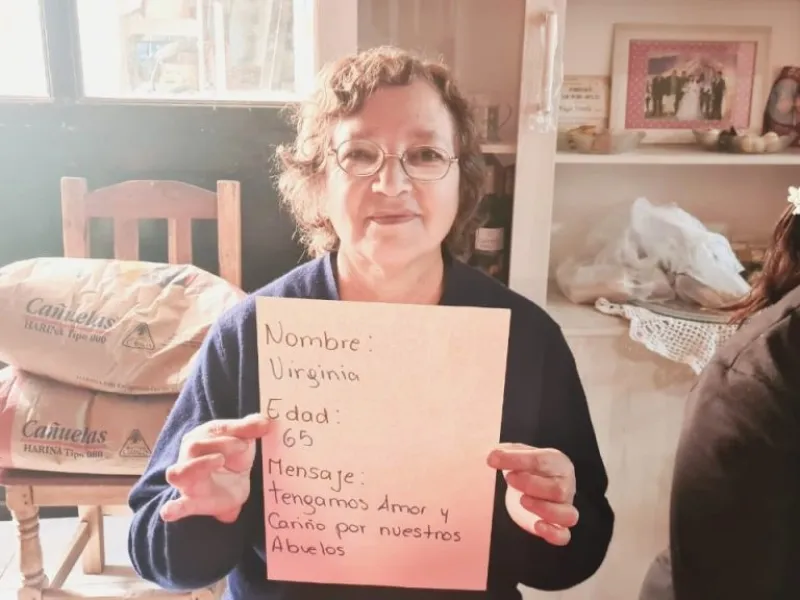 Nombre:
Virginia
Edad:
65
Mensaje:
tengamos Amor y
Cariño por nuestros
Abuelos
Cañuelas
HARINA Tipo 000
Cañuelas
HARINA Tipo 000